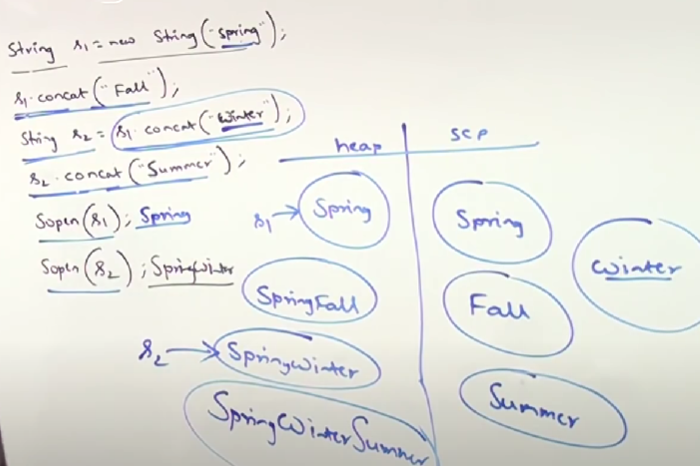 String s1 = new String("Spring");
s1.concat("Fall");
String s2 = s1.concat("Winter");
s2.concat("Summer");
Sopln(s1); Spring
Sopln(s2); SpringWinter
heap
scp
s1 → Spring
Spring
Winter
SpringFall
Fall
s2 → SpringWinter
Summer
SpringWinterSummer